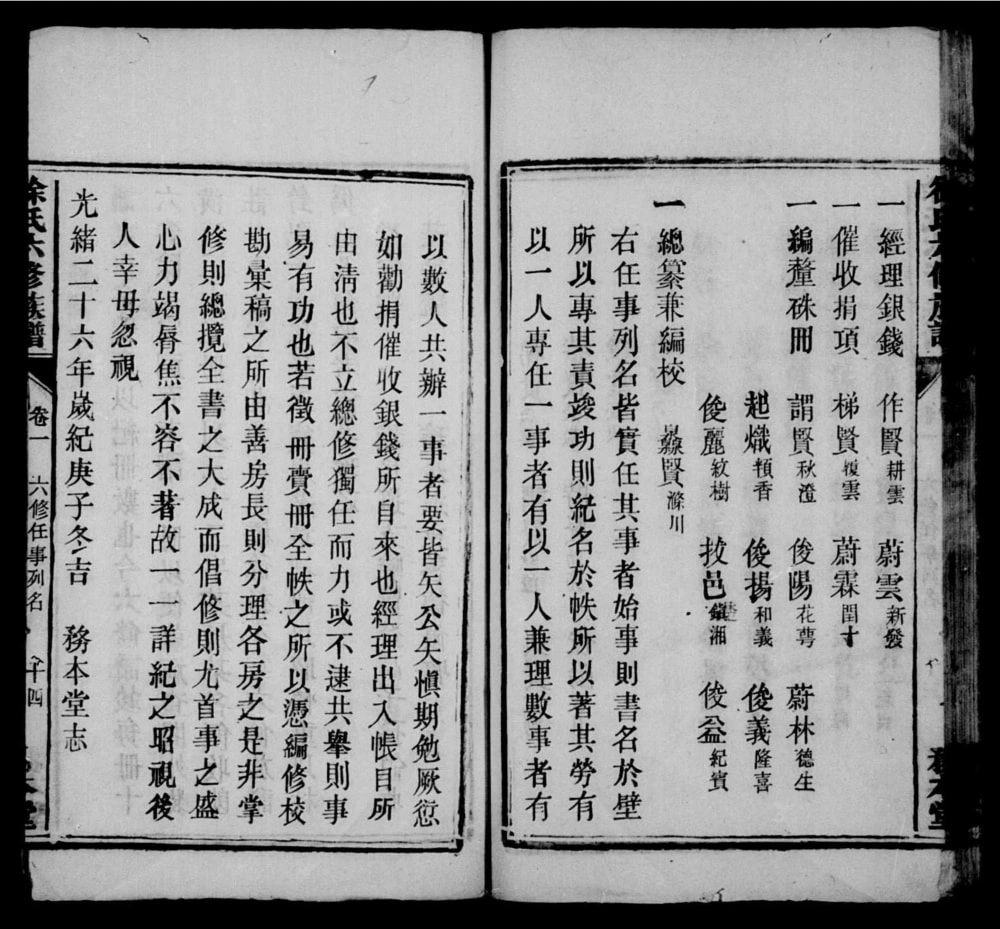 一經理銀錢　作賢耕雲　蔚雲新發
一催收捐項　梯賢複雲　蔚霖閏才
一編釐硃冊　謂賢秋澄　俊陽花萼　蔚林德生
起熾頛香　俊揚和義　俊義隆喜
俊麗紋樹　拔邑鎮湘　俊益紀賓
一總纂兼編校　賢滌川
右任事列名皆實任其事者始事則書名於壁
所以專其責竣功則紀名於帙所以著其勞有
以一人專任一事者有以一人兼理數事者有
以數人共辦一事者要皆矢公矢慎期勉厥愆
如勸捐催收銀錢所自來也經理出入帳目所
由淸也不立總修獨任而力或不逮共舉則事
易有功也若徵冊賣冊全帙之所以憑編修校
勘彙稿之所由善房長則分理各房之是非掌
修則總攬全書之大成而倡修則尤首事之盛
心力竭唇焦不容不著故一一詳紀之昭視後
人幸毋忽視
光緒二十六年歲紀庚子冬吉　務本堂志
徐氏六修族譜　卷一　六修任事列名　十四　本堂